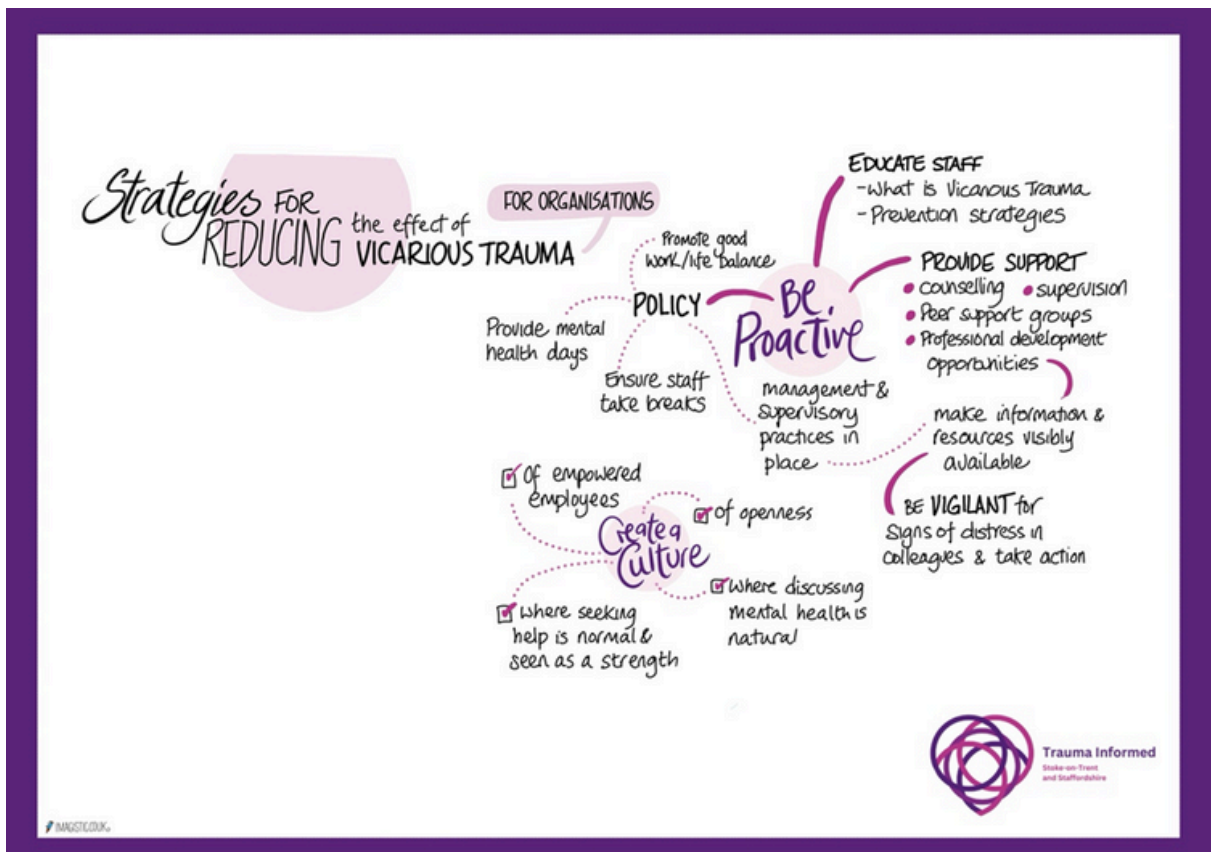 Strategies FOR
REDUCING the effect of
VICARIOUS TRAUMA
FOR ORGANISATIONS
BE
Proactive
EDUCATE STAFF
-What is Vicarious Trauma
- Prevention strategies
PROVIDE SUPPORT
• counselling • supervision
• Peer support groups
• Professional development
opportunities
make information &
resources visibly
available
BE VIGILANT for
signs of distress in
colleagues & take action
POLICY
Promote good
work/life balance
Provide mental
health days
Ensure staff
take breaks
management &
supervisory
practices in
place
Create a
Culture
Of empowered
employees
of openness
where seeking
help is normal &
seen as a strength
where discussing
mental health is
natural
Trauma Informed
Stoke-on-Trent
and Staffordshire
IMAGISTIC.CO.UK